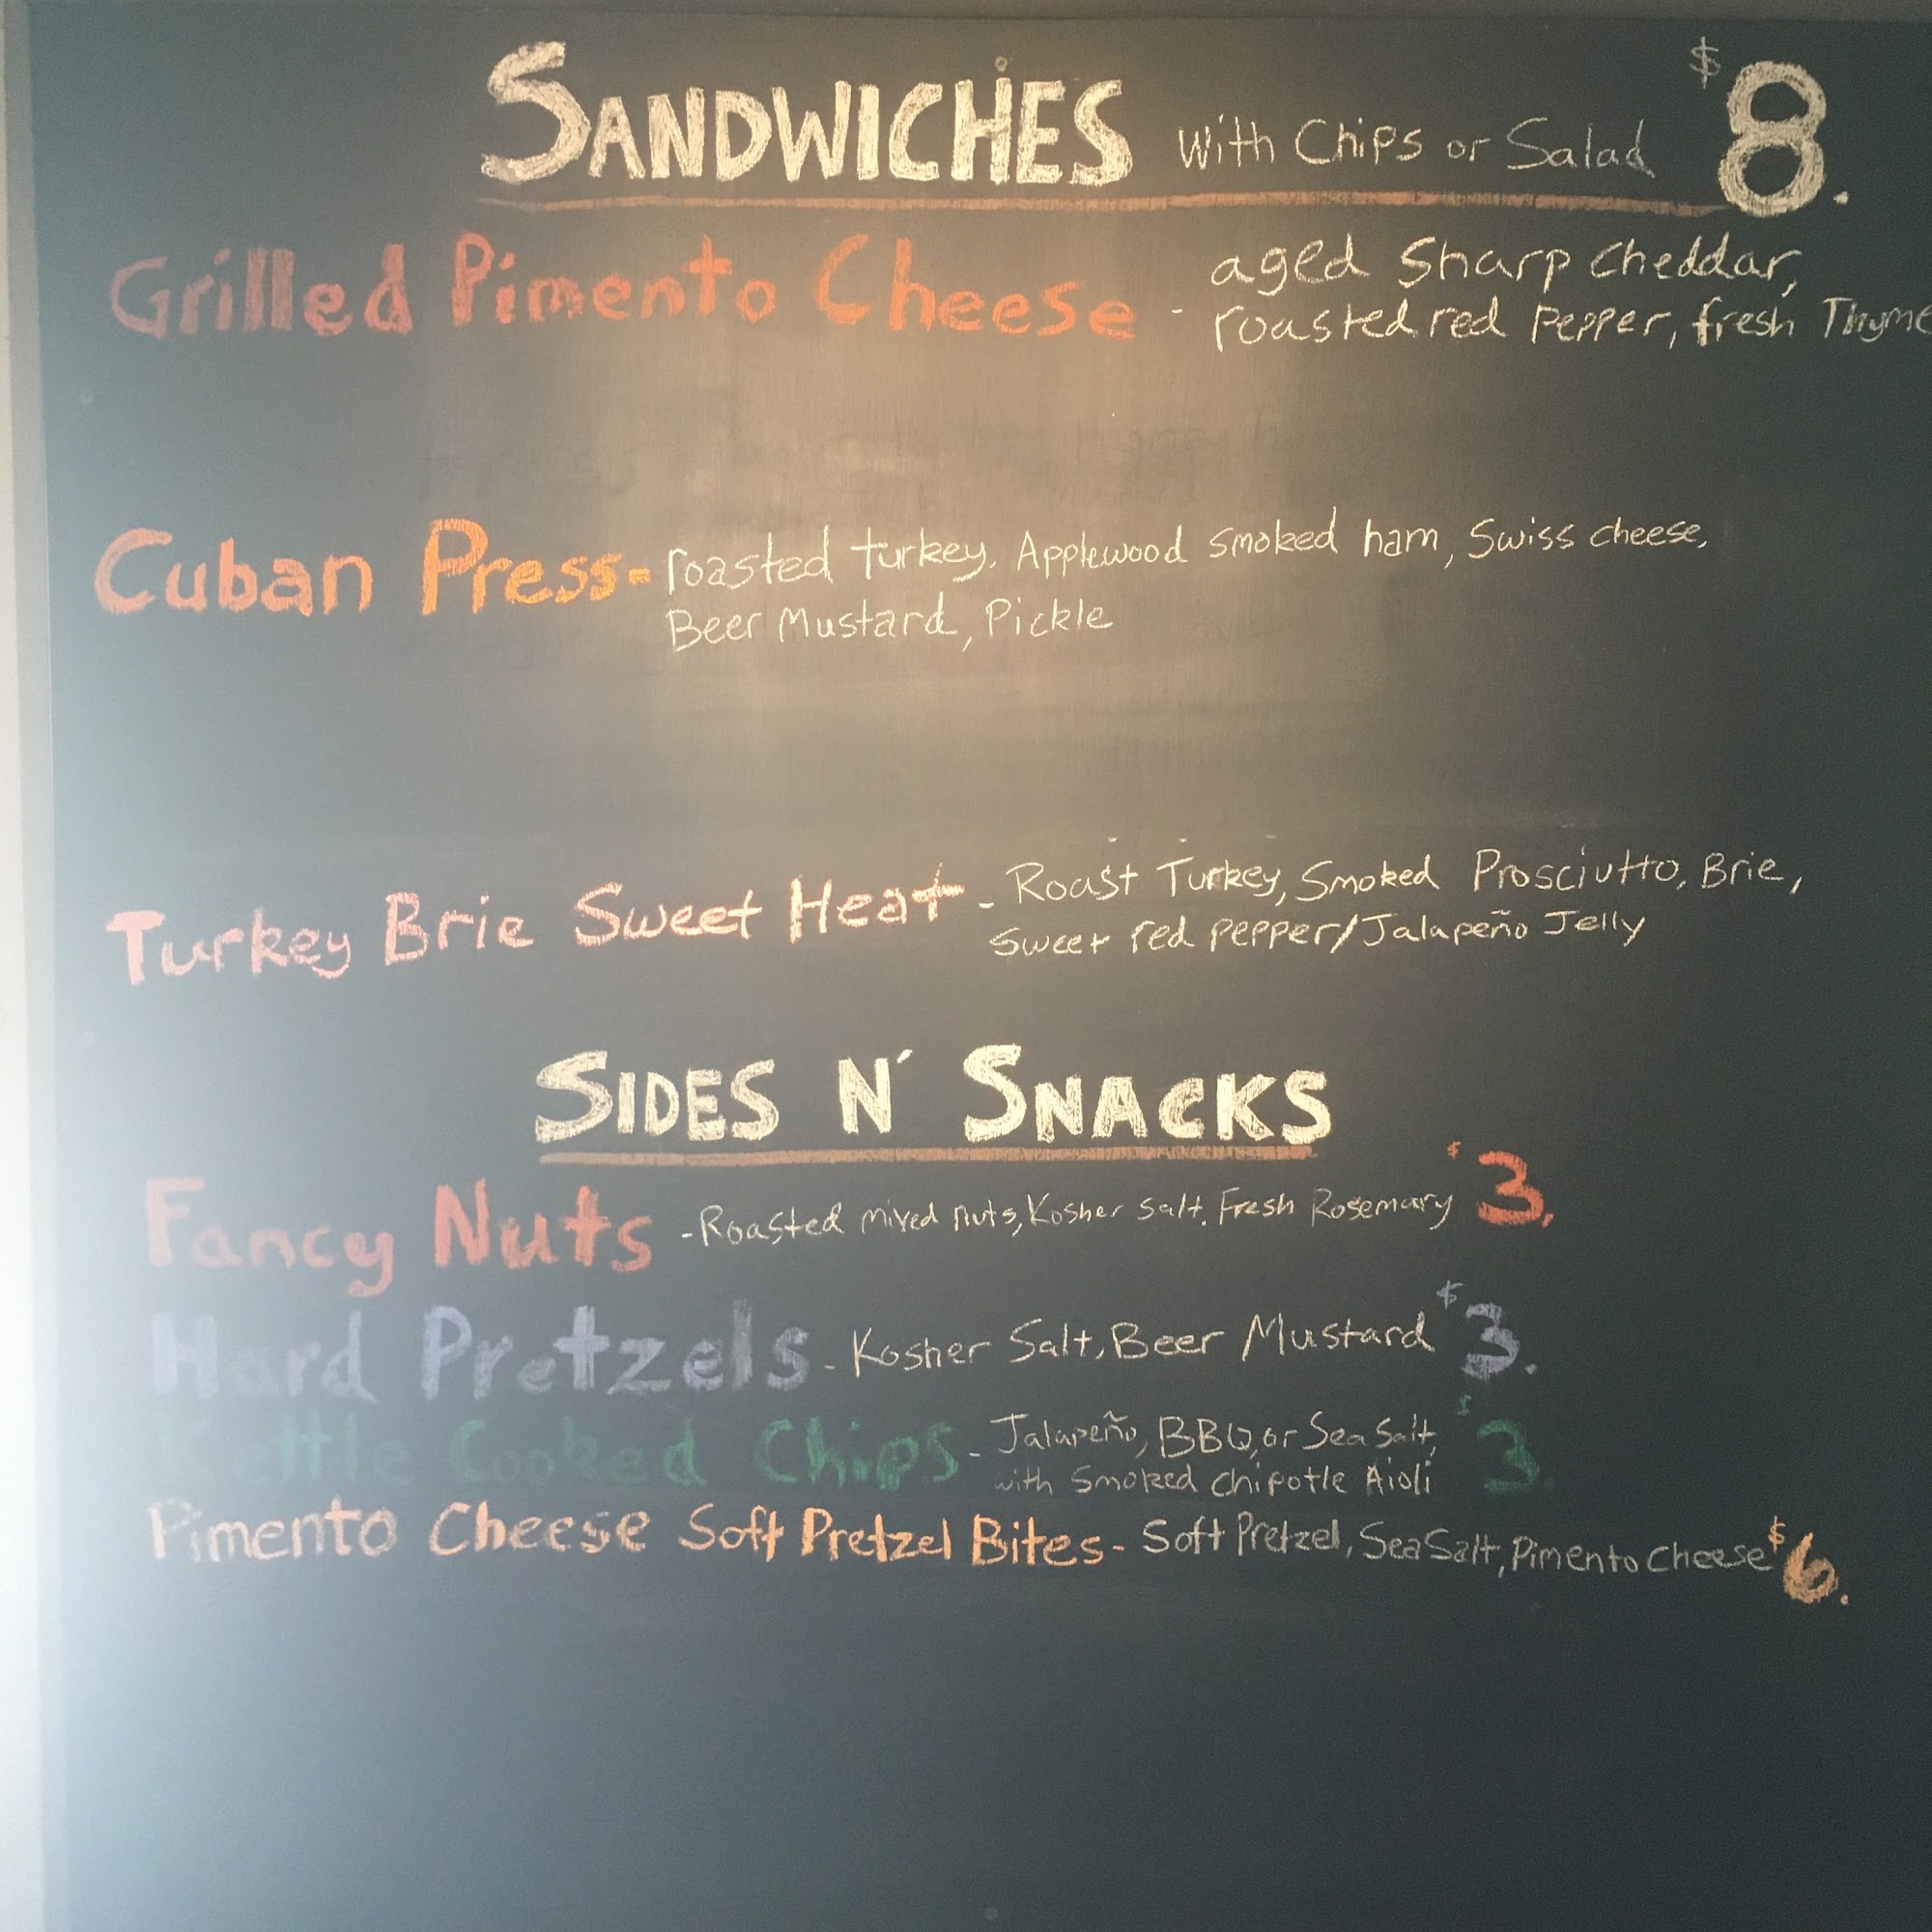 SANDWICHES with Chips or Salad $8.
Grilled Pimento Cheese - aged sharp cheddar,
roasted red pepper, fresh Thyme
Cuban Press - roasted turkey, Applewood smoked ham, Swiss cheese,
Beer Mustard, Pickle
Turkey Brie Sweet Heat - Roast Turkey, Smoked Prosciutto, Brie,
Sweet red pepper/Jalapeño Jelly
SIDES N' SNACKS
Fancy Nuts - Roasted mixed nuts, Kosher salt, Fresh Rosemary $3.
Hard Pretzels - Kosher Salt, Beer Mustard $3.
Kettle Cooked Chips - Jalapeño, BBQ, or Sea Salt, $3.
with Smoked Chipotle Aioli
Pimento Cheese Soft Pretzel Bites - Soft Pretzel, Sea Salt, Pimento Cheese $6.